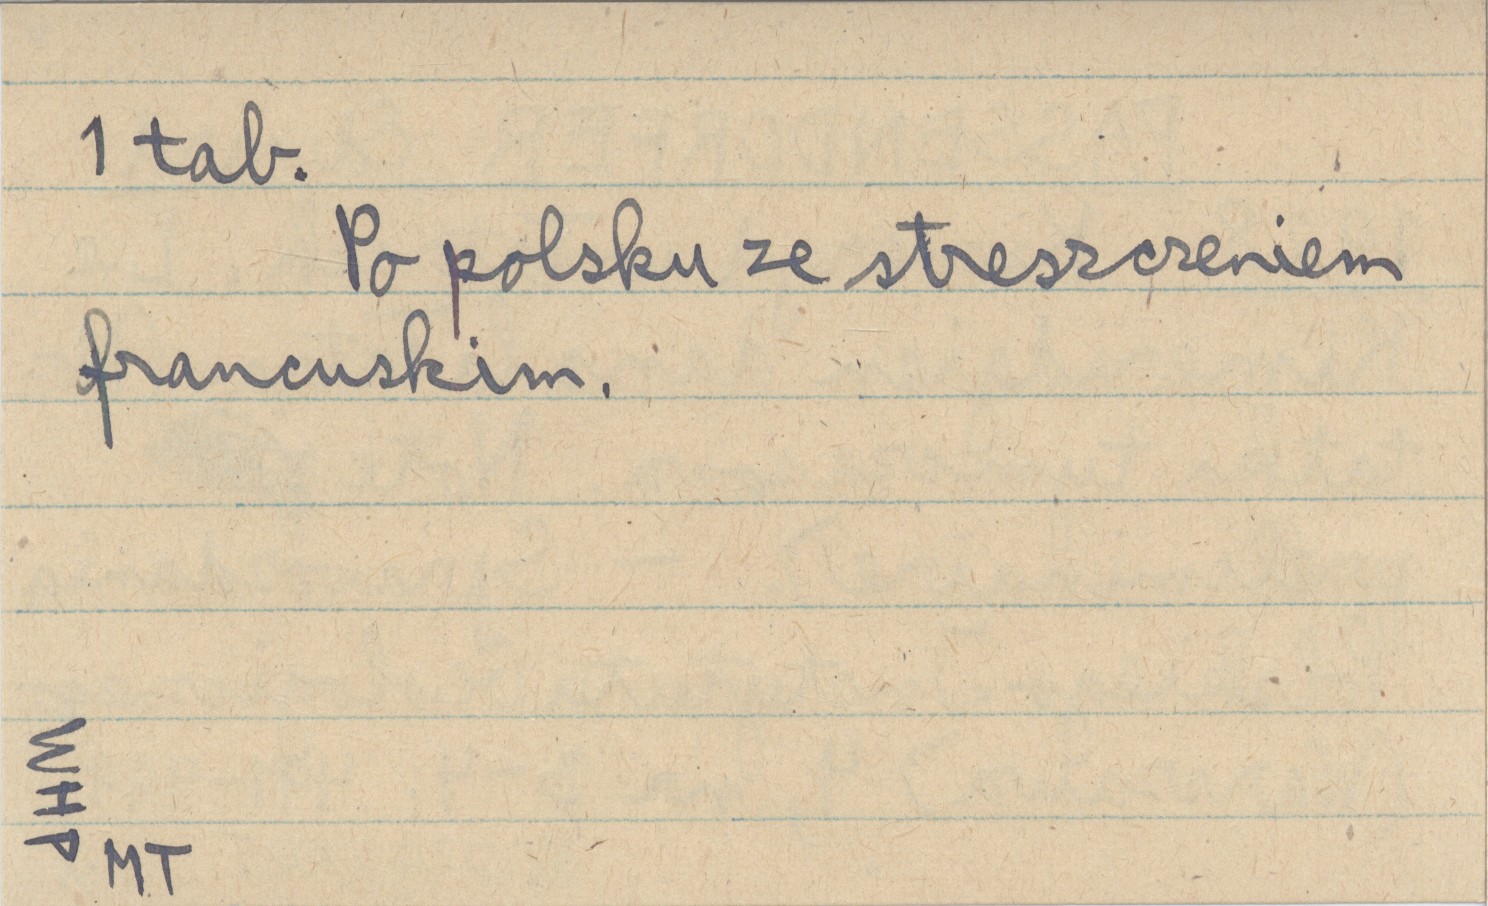 1 tab.
Po polsku ze streszczeniem
francuskim.
WHP
MT